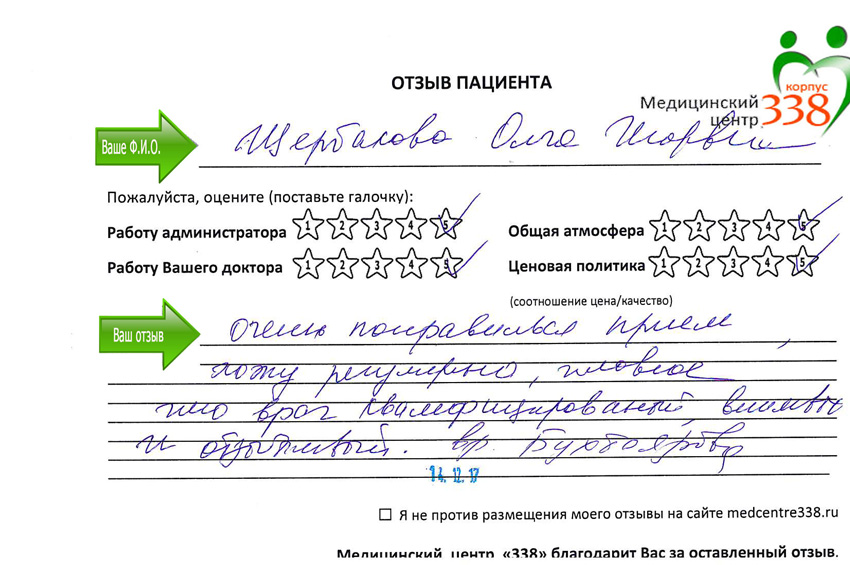 ОТЗЫВ ПАЦИЕНТА
корпус
Медицинский центр 338
Ваше Ф.И.О.
Щербакова Ольга
Пожалуйста, оцените (поставьте галочку):
Работу администратора 1 2 3 4 5
Общая атмосфера 1 2 3 4 5
Работу Вашего доктора 1 2 3 4 5
Ценовая политика 1 2 3 4 5
(соотношение цена/качество)
Ваш отзыв
очень понравился прием,
хожу регулярно, главное
что врач квалифицированый,
и отзывчивый. вр.
14.12.17
Я не против размещения моего отзывы на сайте medcentre338.ru
Медицинский центр «338» благодарит Вас за оставленный отзыв.